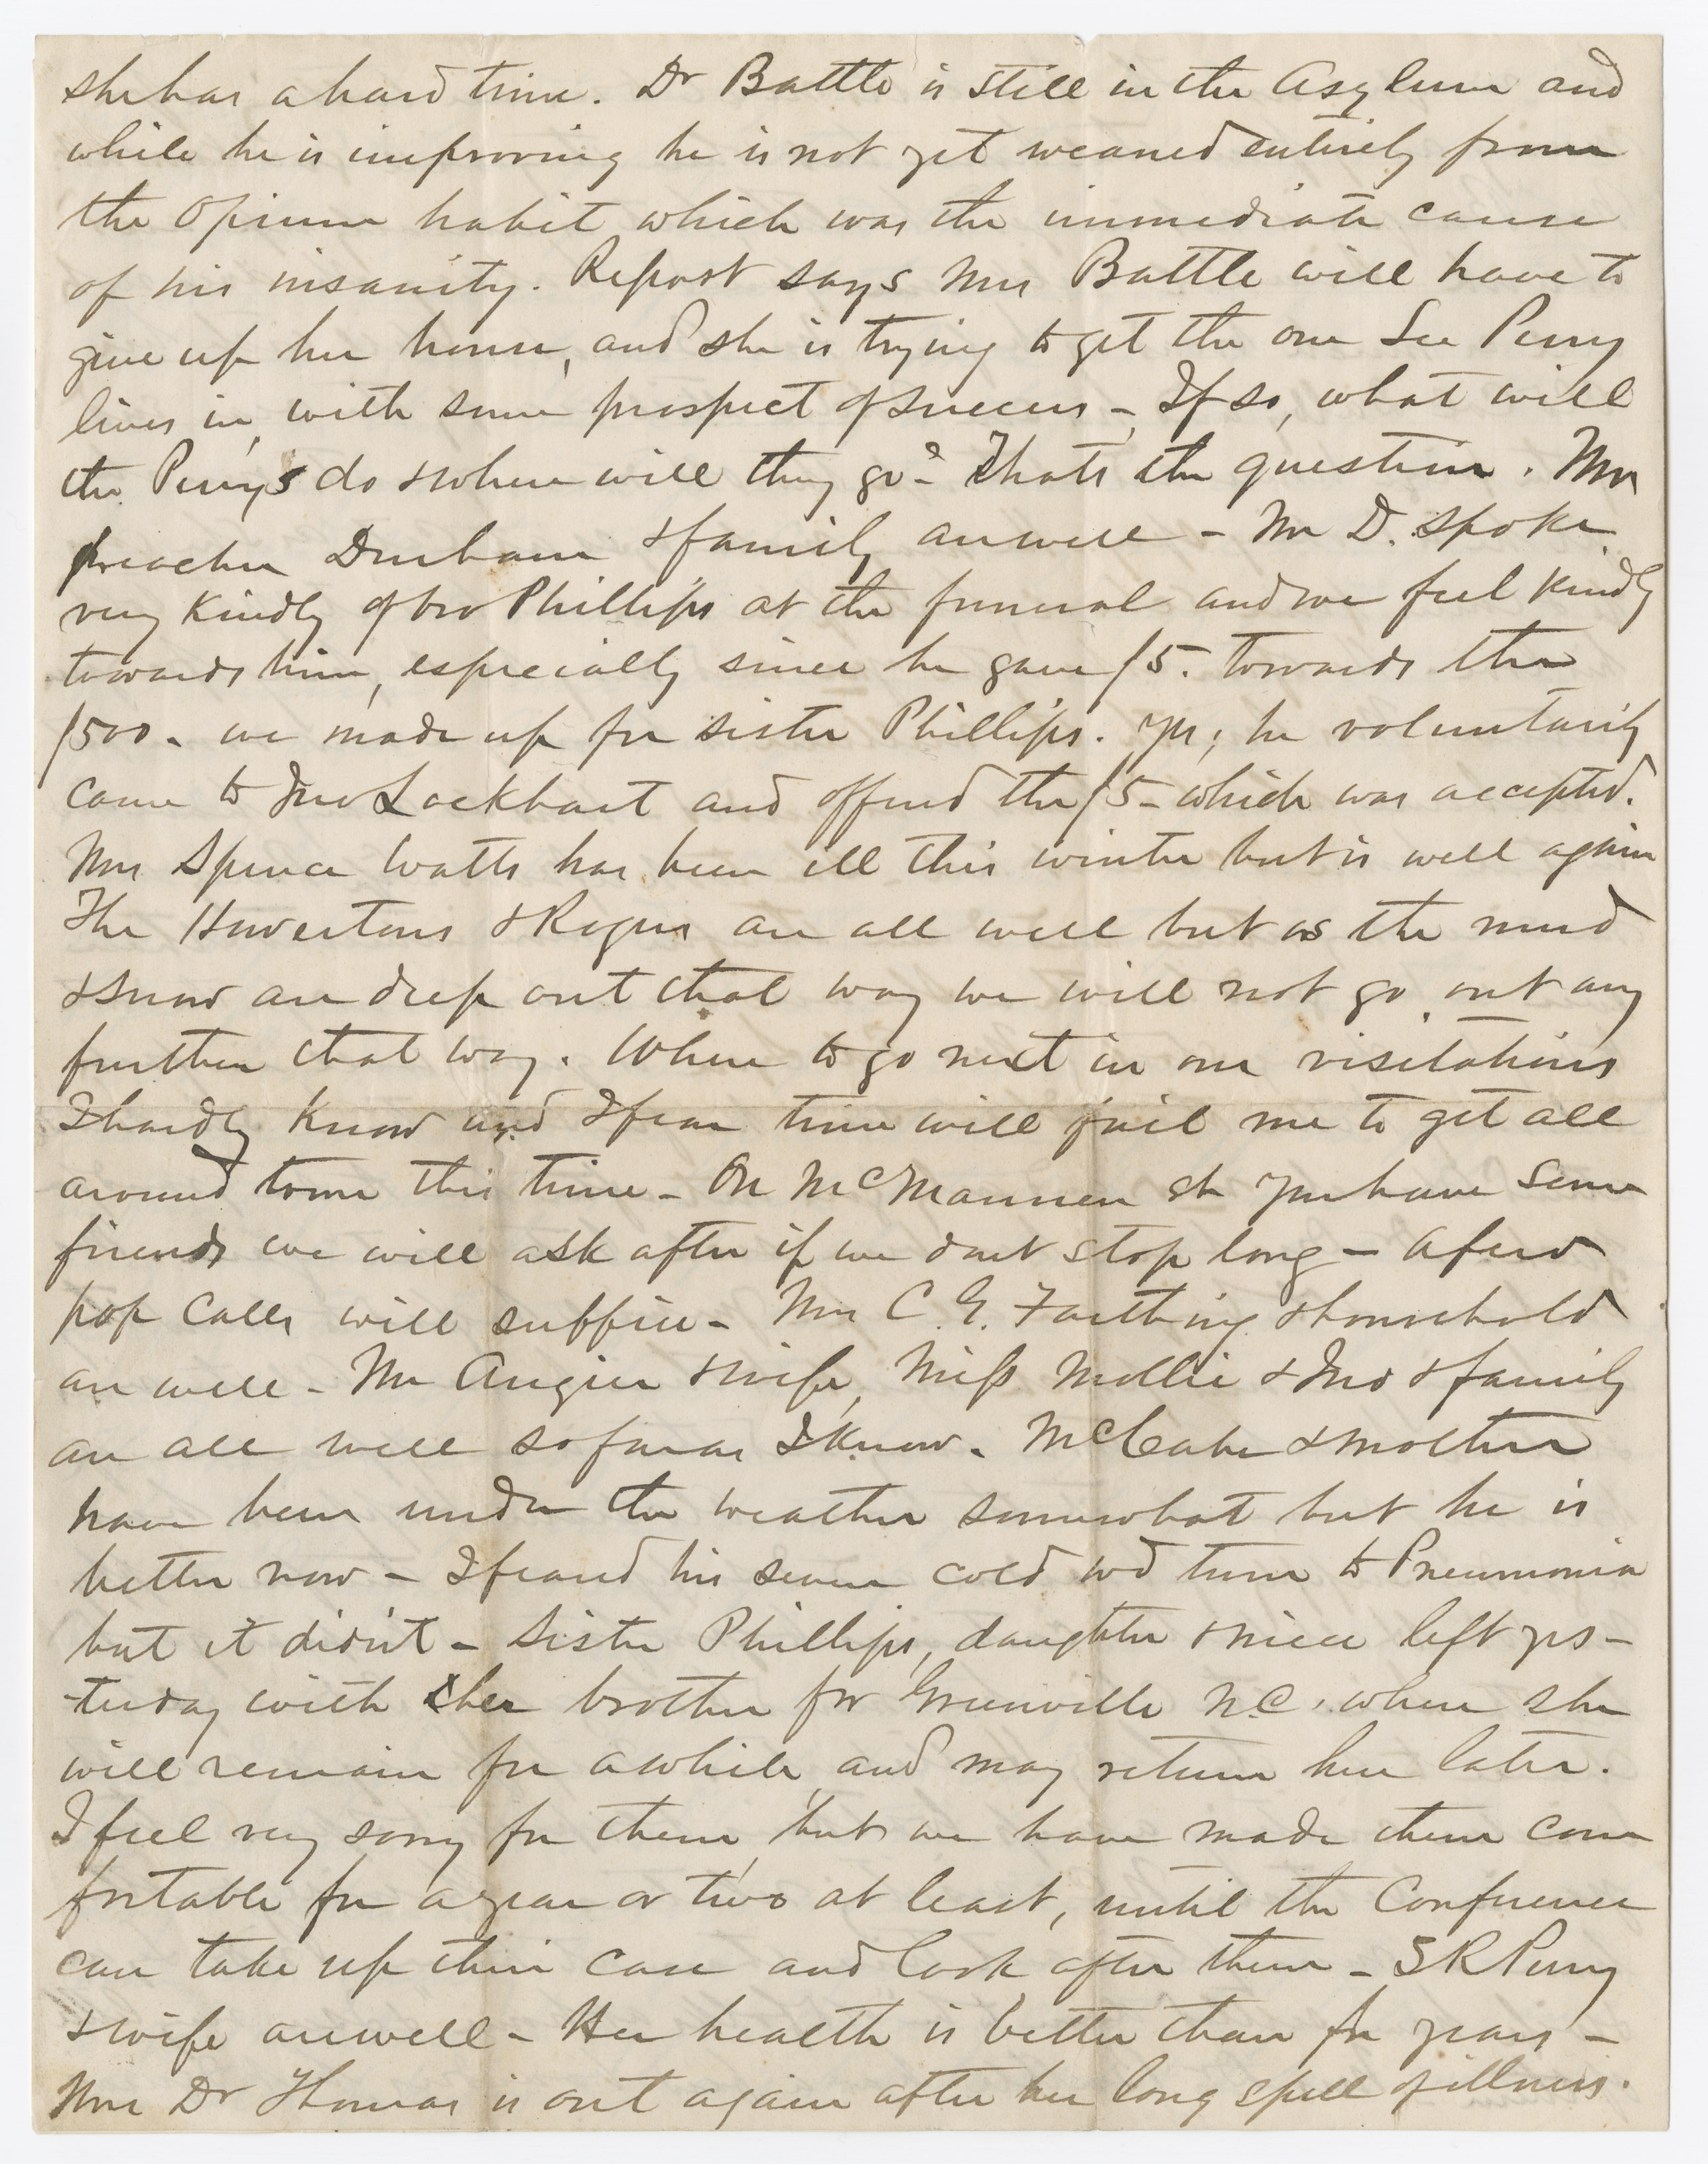 she has a hard time. Dr Battle is still in the Asylum and
while he is improving he is not yet weaned entirely from
the Opium habit which was the immediate cause
of his insanity. Report says Mrs Battle will have to
give up her house, and she is trying to get the one Perry
lives in, with some prospect of success - If so, what will
the Perrys do & where will they go? Thats the question. Mr
preacher Durham & family are well - Mr D. spoke
very Kindly of bro Phillips at the funeral and we feel Kindly
towards him, especially since he gave $5. towards the
$500. we made up for sister Phillips. Yes; he voluntarily
came to Jno Lockhart and offered the $5 - which was accepted.
Mrs Spence Watts has been ill this winter but is well again
The Howertons & Rogers are all well but as the mud
& snow are deep out that way we will not go out any
further that way. Where to go next in our visitations
I hardly Know and I fear time will fail me to get all
around town this time - On McMannen St you have some
friends we will ask after if we dont stop long - a few
pop Calls will suffice - Mrs C. G. Farthing & household
are well - Mr Angier & wife, Miss Mollie & Jno & family
are all well so far as I Know. McCabe & mother
have been under the weather somewhat but he is
better now - I feared his severe cold wd turn to Pneumonia
but it didn't - Sister Phillips, daughter & niece left yes-
-terday with her brother for Greenville N.C. where she
will remain for awhile, and may return here later.
I feel very sorry for them, but we have made them com
fortable for a year or two at least, until the Conference
can take up their case and look after them - S R Perry
& wife are well - Her health is better than for years -
Mrs Dr Thomas is out again after her long spell of illness.